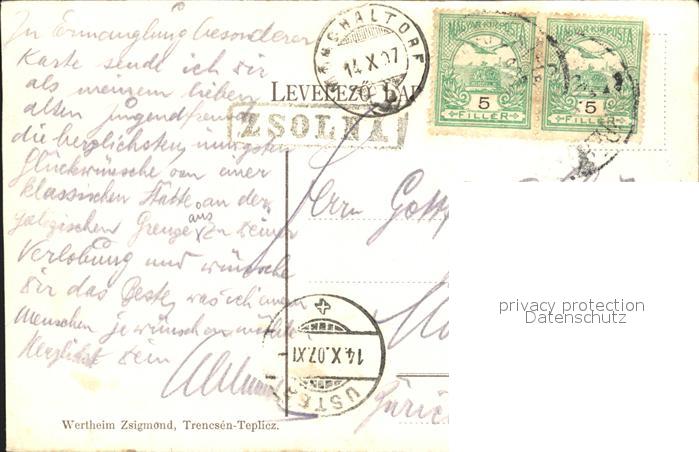 In Ermanglung besonderer
Karte sende ich dir
als meinem lieben
alten Jugendfreund
die herzlichsten, innigsten
Glückwünsche von einer
klassischen Stätte an der
Grenze aus zu deiner
Verlobung und wünsche
dir das Beste, was ich einem
Menschen je wünschen möchte
Herzlichst Dein
Wertheim Zsigmond, Trencsén-Teplicz.
14 X 07
LEVELEZŐ
ZSOLNA
MAGYAR KIR. POSTA
5
FILLÉR
MAGYAR KIR. POSTA
5
FILLÉR
Herrn
14.X.07.XI
USTER
Zürich
privacy protection
Datenschutz